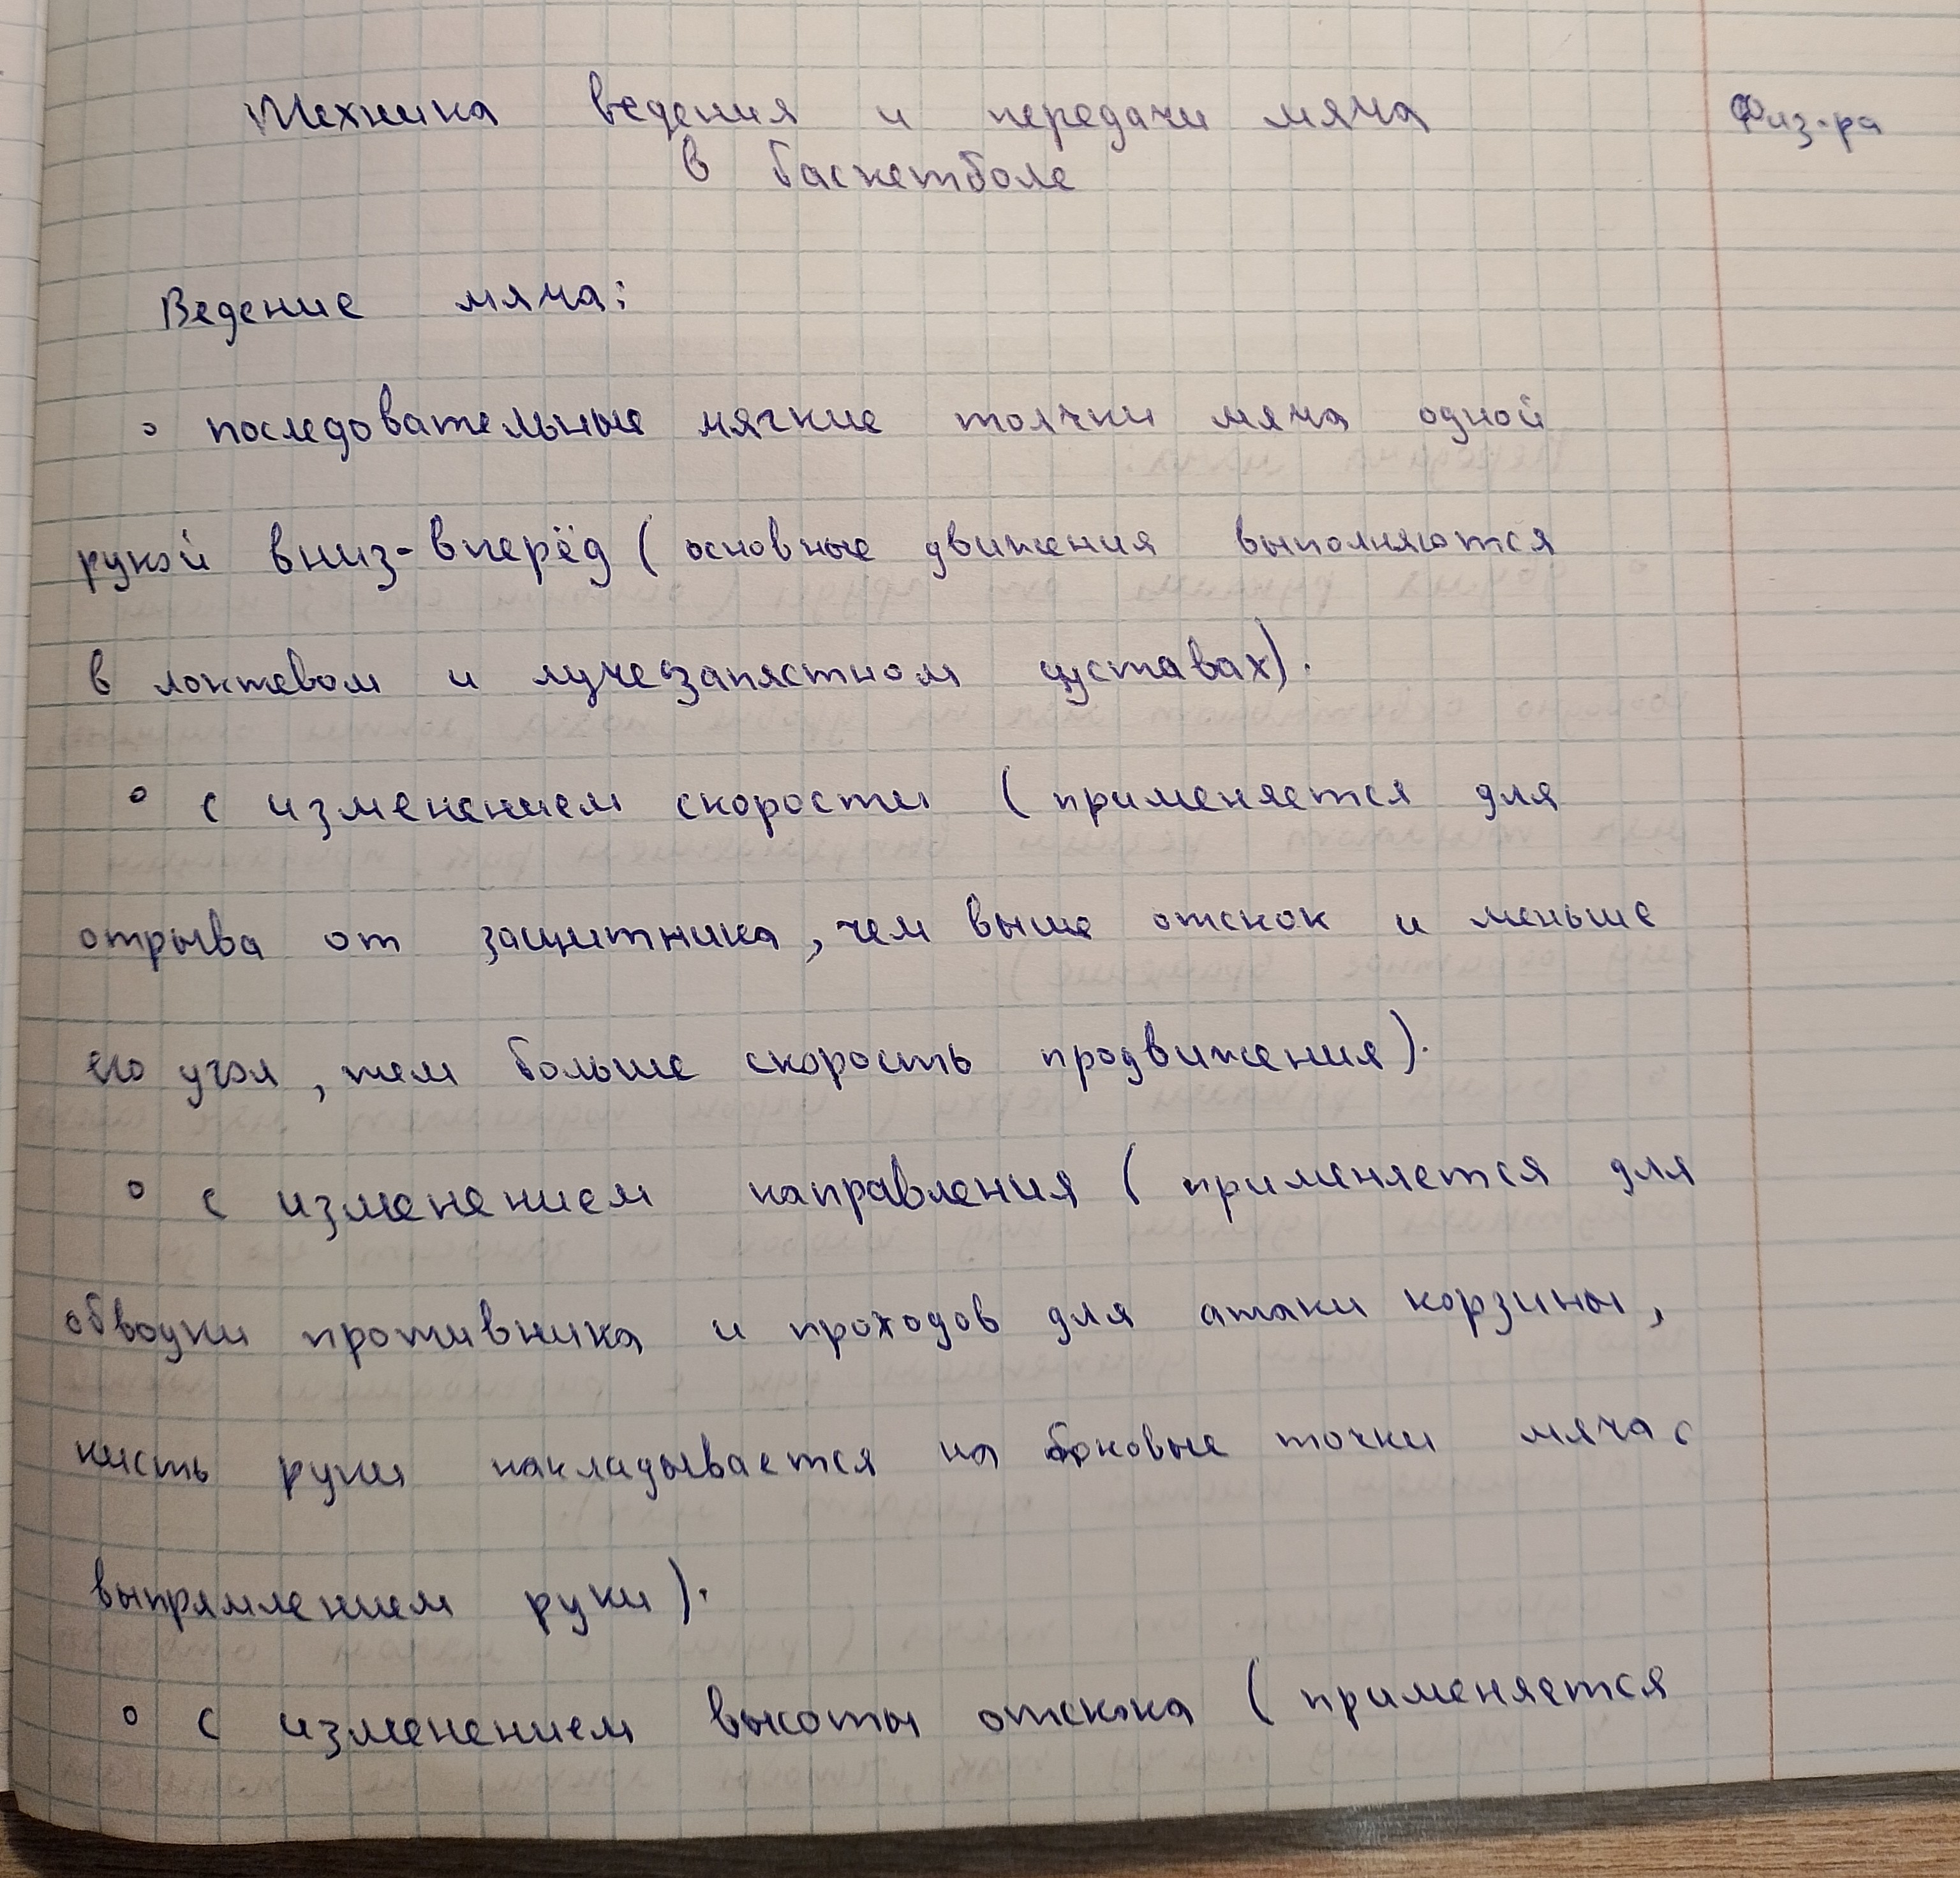 Техника ведения и передачи мяча
Физ-ра
в баскетболе
Ведение мяча:
◦ последовательные мягкие толчки мяча одной
рукой вниз-вперёд (основные движения выполняются
в локтевом и лучезапястном суставах).
◦ с изменением скорости (применяется для
отрыва от защитника, чем выше отскок и меньше
его угол, тем больше скорость продвижения).
◦ с изменением направления (применяется для
обводки противника и проходов для атаки корзины,
кисть руки накладывается на боковые точки мяча с
выпрямлением руки).
◦ с изменением высоты отскока (применяется